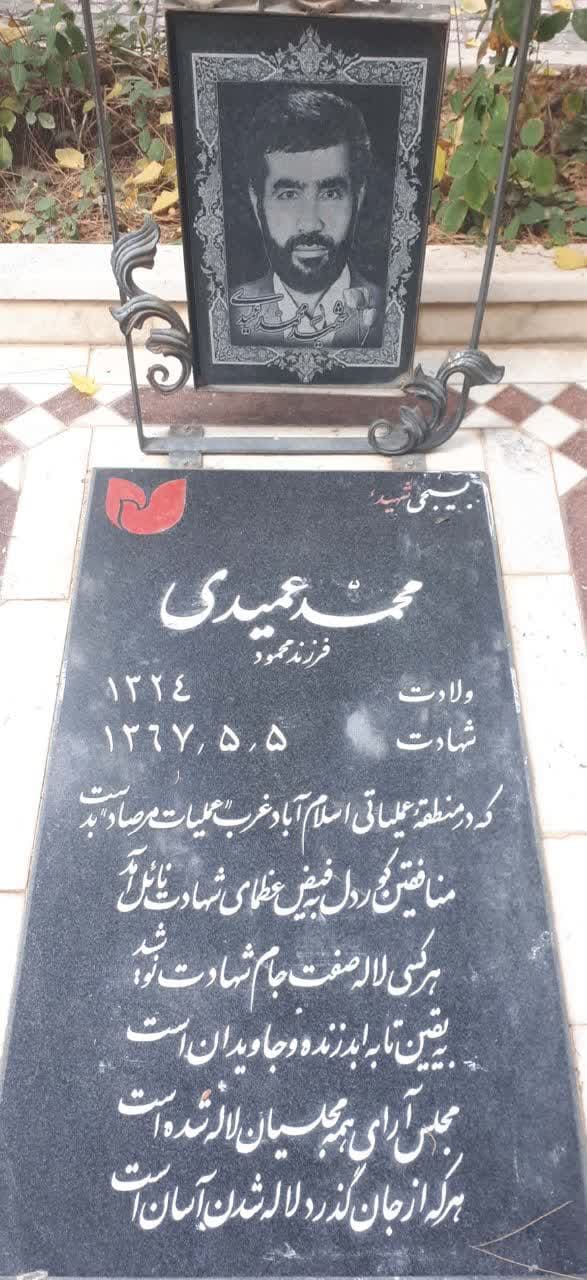 شهید محمد عمیدی
بسیجی شهید
محمد عمیدی
فرزند محمود
ولادت ١٣٢٤
شهادت ١٣٦٧٫٥٫٥
که در منطقهٔ عملیاتی اسلام آباد غرب "عملیات مرصاد" بدست
منافقین کوردل به فیض عظمای شهادت نائل آمد
هر کسی لاله صفت جام شهادت نوشد
به یقین تا به ابد زنده و جاویدان است
مجلس آرای همه مجلسیان لاله شده است
هر که از جان گذرد لاله شدن آسان است